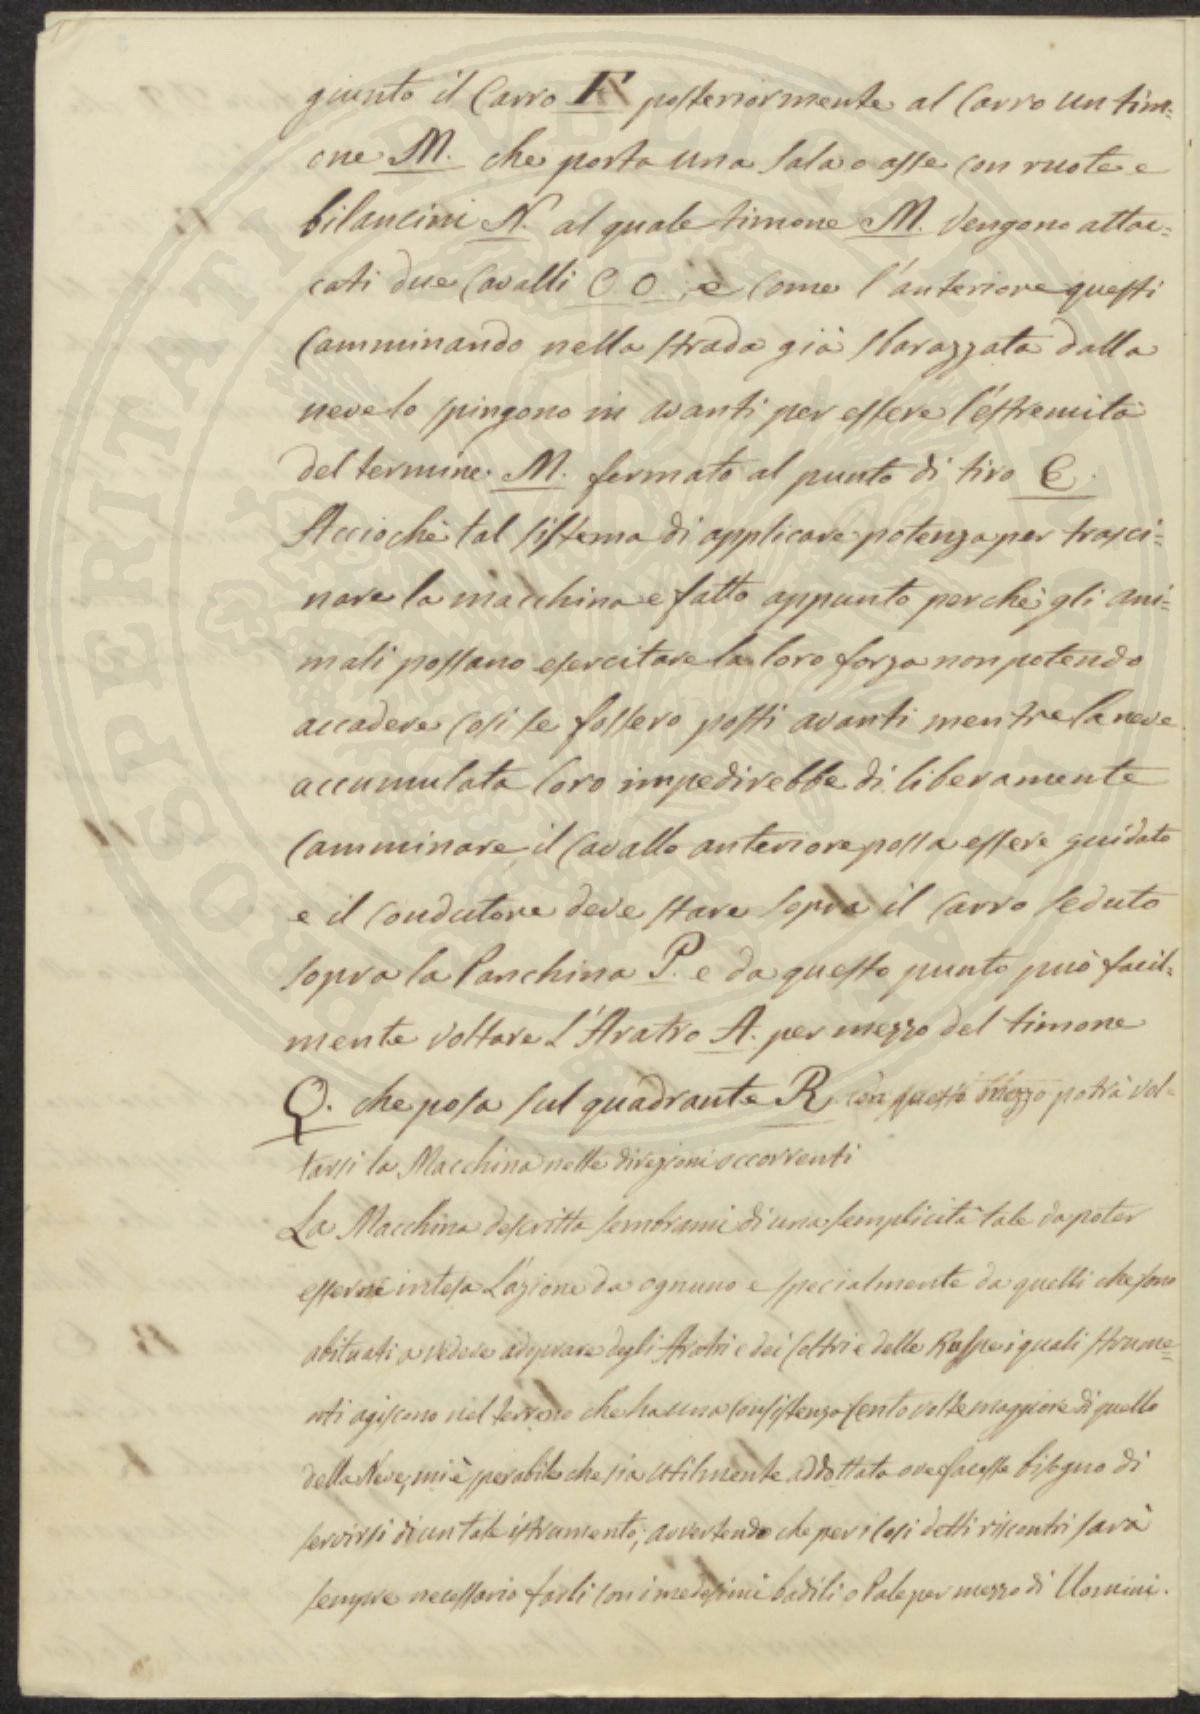 giunto il Carro F posteriormente al Carro un tim=
one M. che porta una sala o asse con ruote e
bilancini N. al quale timone M. vengono attac=
cati due Cavalli O.O., e come l'anteriore questi
Camminando nella strada già sbarazzata dalla
neve lo spingono in avanti per essere l'estremità
del termine M. fermato al punto di tiro E.
Acciochè tal sistema di applicare potenza per trasci=
nare la macchina e fatto appunto perchè gli ani=
mali possano esercitare la loro forza non potendo
accadere così se fossero posti avanti mentre la neve
accumulata loro impedirebbe di liberamente
Camminare, il Cavallo anteriore possa essere guidato
e il conduttore deve stare sopra il Carro seduto
sopra la Panchina P. e da questo punto può facil=
mente voltare L'Aratro A. per mezzo del timone
Q. che posa sul quadrante R. con questo mezzo potrà vol-
tarsi la Macchina nelle direzioni occorrenti
La Macchina descritta sembrami di una semplicità tale da poter
esserne intesa L'azione da ognuno e specialmente da quelli che sono
abituati a vedere adoprare degli Aratri e dei Coltri e delle Ruspe i quali strume=
nti agiscono nel terreno che ha una consistenza cento volte maggiore di quello
della Neve, mi è sperabile che sia utilmente addottata ove facesse bisogno di
servirsi di un tale istrumento; avvertendo che per i così detti riscontri sarà
sempre necessario farli con i medesimi badili o Pale per mezzo di Uomini.
PROSPERITATI PUBLICAE